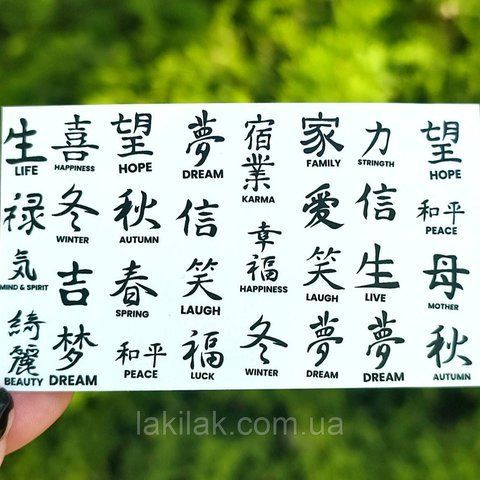 生 喜 望 夢 宿業 家 力 望
LIFE HAPPINESS HOPE DREAM KARMA FAMILY STRINGTH HOPE
禄 冬 秋 信 幸福 愛 信 和平
WINTER AUTUMN HAPPINESS PEACE
気 吉 春 笑 笑 生 母
MIND & SPIRIT SPRING LAUGH LAUGH LIVE MOTHER
綺麗 梦 和平 福 冬 夢 夢 秋
BEAUTY DREAM PEACE LUCK WINTER DREAM DREAM AUTUMN
lakilak.com.ua